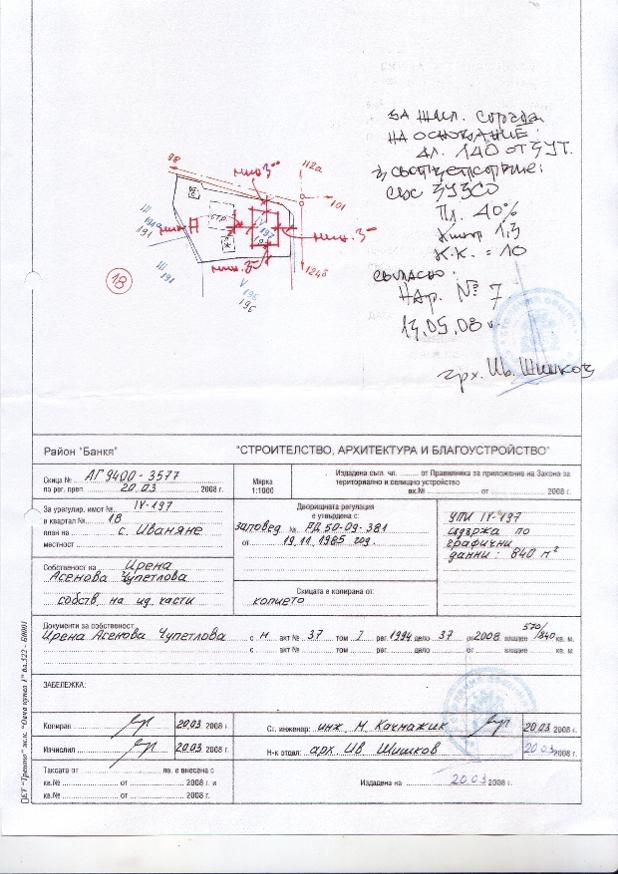 ЗА ЖИЛ. СГРАДА
НА ОСНОВАНИЕ:
ЧЛ. 140 ОТ ЗУТ.
СЪС ЗУЗСО
Пл. 40%
Кинт 1,3
К.К. = 10
СЪГЛАСНО:
Нар. № 7
13.05.08 г.
арх. Ив. Шишков
98
112а
мин 3
101
IV
197
стр.
мин. 3
191
мин. 5
III
191
124б
V
196
196
18
Район "Банкя"
"СТРОИТЕЛСТВО, АРХИТЕКТУРА И БЛАГОУСТРОЙСТВО"
Скица № АГ 9400-3577
по рег. преп. 20.03 2008 г.
Мярка
1:1000
Издадена съгл. чл. ......... от Правилника за приложение на Закона за
териториално и селищно устройство
вх.№ ............ от ............ 2008 г.
За урегулир. имот № IV-197
в квартал № 18
план на с. Иваняне
местност
Дворищната регулация
е утвърдена с:
заповед № РД.50-09-381
от 19.11.1985 год.
УПИ IV-197
съдържа по
графични
данни: 840 м²
Собственост на Ирена
Асенова Чупетлова
собств. на ид. части
Скицата е копирана от:
копието
Документи за собственост
Ирена Асенова Чупетлова с Н акт № 37 том I рег. 1994 дело 37 от 2008 владее 570/840 кв. м.
с № акт № том рег. дело от владее кв. м.
ЗАБЕЛЕЖКА:
Копирал 20.03 2008 г.
Ст. инженер: инж. М. Качмажик 20.03 2008 г.
Изчислил 20.03 2008 г.
Н-к отдел: арх. Ив. Шишков 20.03 2008 г.
Таксата от ............ лв. е внесена с
кв.№ ............ от ............ 2008 г. и
кв.№ ............ от ............ 2008 г.
Издадена на 20.03 2008 г.